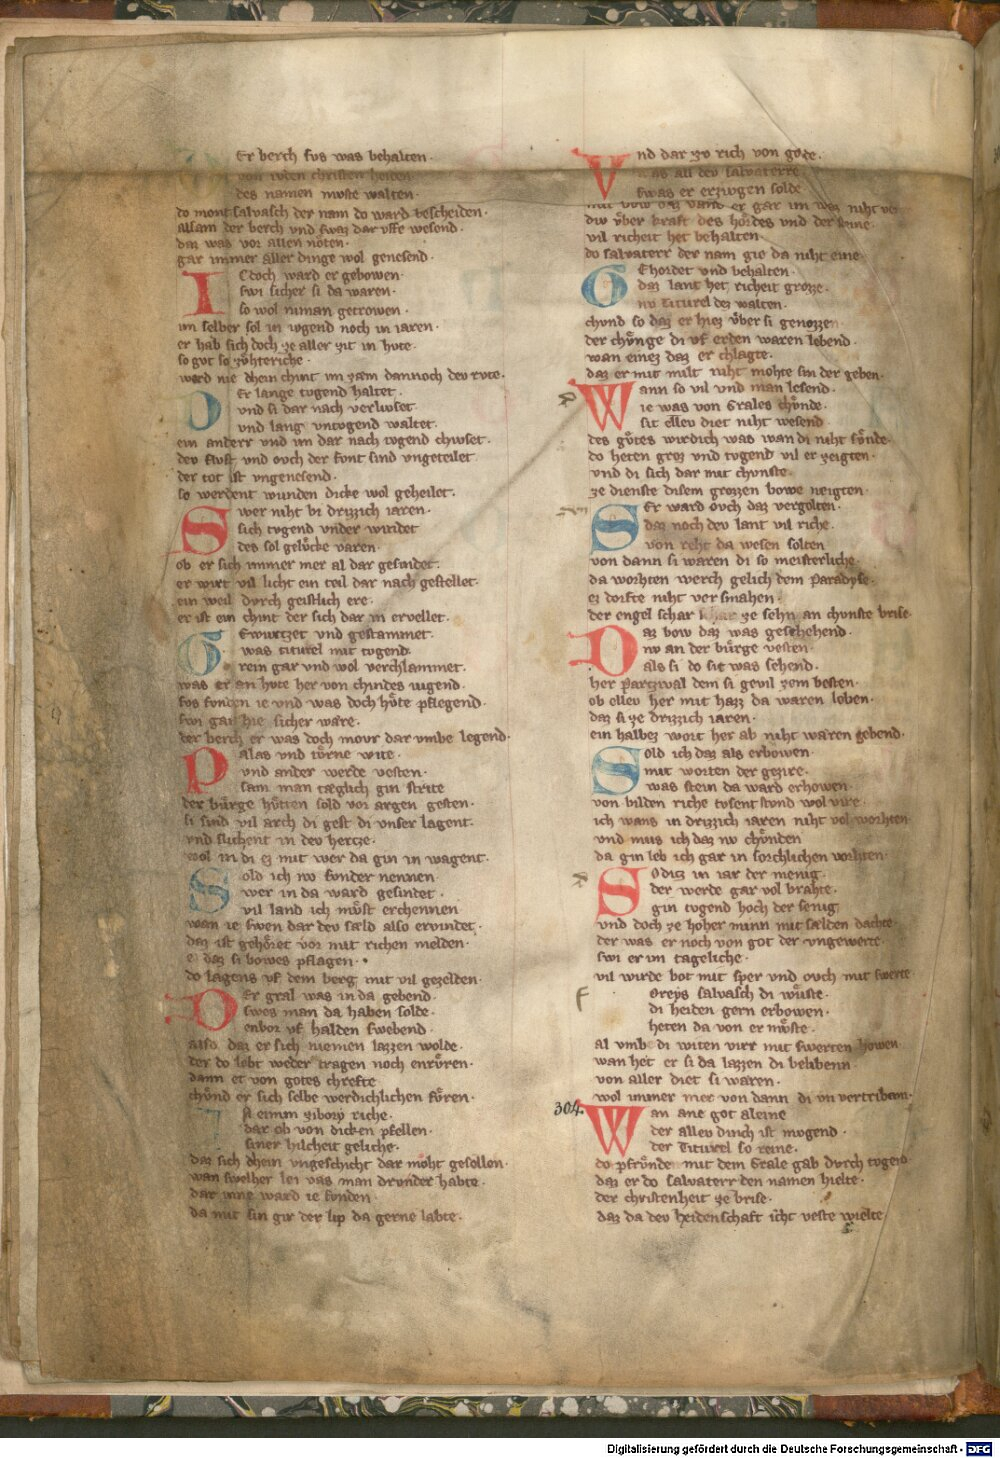 Er berch sus was behalten·
von ivden christen heiden·
des namen mvste walten·
do montsalvasch der nam do ward bescheiden·
allsam der berch vnd swaz dar vffe wesend·
daz was vor allen nöten·
gar immer aller dinge wol genesend·
I Edoch ward er gebowen·
swi sicher si da waren·
so wol niman getrowen·
im selber sol in ivgend noch in iaren·
er hab sich doch ze aller zit in hvte·
so gvt so zvhteriche·
ward nie dhein chint im zæm dannoch dev rvte·
D Er lange tvgend haltet·
vnd si dar nach verlivset·
vnd lang vntvgend waltet·
ein anderr vnd im dar nach tvgend chivset·
dev flvst vnd ovch der fvnt sind vngeteilet
der tot ist vngenesend·
so werdent wunden dicke wol geheilet·
S wer niht bi drizzich iaren·
sich tvgend vnder windet
des sol gelücke varen·
ob er sich immer mer al dar gesindet·
er wirt vil licht ein teil dar nach gestellet·
ein weil dvrch geistlich ere·
er ist ein chint der sich dar in ervellet·
G Ewurtzet vnd gestammet·
was titurel mit tvgend·
rein gar vnd wol verchlammet·
was er an hvte her von chindes ivgend·
svs fvnden ie vnd was doch hvte pflegend·
swi gar hie sicher wäre·
der berch er was doch movr dar vmbe legend·
P alas vnd tvrne wite·
vnd ander werde vesten·
sam man tæglich gin strite
der bürge hvtten sold vor argen gesten·
si sind vil arch di gest di vnser lagent·
vnd slichent in dev hertze·
wol in di ez mit wer da gin in wagent·
S old ich nv svnder nennen
wer in da ward gesindet·
vil land ich mvst erchennen
wan ie swen dar dev sæld also ervindet·
daz ist gehöret vor mit richen melden·
e daz si bowes pflagen·
do lagens vf dem berg mit vil gezelden·
D Er gral was in da gebend·
swes man da haben solde·
enbor vf halden swebend·
also daz er sich niemen lazzen wolde·
der do lebt weder tragen noch enrvren·
dann et von gotes chrefte
chvnd er sich selbe werdichlichen fvren·
si einim zibory riche·
dar ob von dicken pfellen·
siner hilcheit geliche·
daz sich dhein vngeschicht dar möht gesellen·
wan swelher lei vas man drvnder habte·
dar inne ward ie fvnden·
da mit sin gir der lip da gerne labte·
V nd dar zv rich von gote·
was all dev salvaterre·
swas er erzivgen solde·
niht ver
div vber kraft des hordes vnd der steine·
vil richeit het behalten·
do salvaterr der nam gie da niht eine
G Ehordet vnd behalten·
daz lant het richeit grozze·
nv titurel dez walten·
chvnd so daz er hiez vber si genozzen·
der chvnge di vf erden waren lebend·
wan einez daz er chlagte·
daz er mit milt niht mohte sin der geben·
W ann so vil vnd man lesend·
ie was von Grales chvnde·
sit ellev diet niht wesend·
des gvtes wirdich was wan di niht svnde·
do heten groz vnd tvgend vil er zeigten·
vnd di sich dar mit chvnste·
ze dienste disem grozzen bowe neigten·
S Er ward ovch daz vergolten·
daz noch dev lant vil riche·
von reht da wesen solten
von dann si waren di so meisterliche·
da worhten werch gelich dem Paradyse·
ez dorfte niht versmahen·
der engel schar ze sehn an chvnste brise·
D az bow daz was geschehend·
nv an der bürge vesten·
als si do sit was sehend·
her Partzival dem si gevil zem besten·
ob ellev her mit hazz da waren leben·
daz si ze drizzich iaren·
ein halbez wort her ab niht wären gebend·
S old ich daz als erbowen·
mit worten der gezire·
was stein da ward erhowen·
von bilden riche tvsent stvnd wol vire·
ich wans in drizzich iaren niht vol worhten
vnd mus ich daz nv chvnden
da gin leb ich gar in sorchlichen vorhten·
S Odiz in iar der menig·
der werde gar vol brahte·
gin tvgend hoch der senig
vnd doch ze hoher minn mit sælden dachte
der was er noch von got der vngewerte·
swi er im tageliche·
vil wirde bot mit sper vnd ovch mit swerte
F oreys salvasch di wüste·
di heiden gern erbowen·
heten da von er mvste·
al vmb di witen virr mit swerten howen
wan het er si da lazzen di belibenn·
von aller diet si waren·
wol immer mer von dann di vn vertriben·
304.
W an ane got aleine
der allev dinch ist mvgend·
der Titurel so reine·
do pfrvnde mit dem Grale gab dvrch tvgend
daz er do salvaterr den namen hielte·
der christenheit ze brise·
daz da dev heidenschaft icht veste wielte
Digitalisierung gefördert durch die Deutsche Forschungsgemeinschaft - DFG